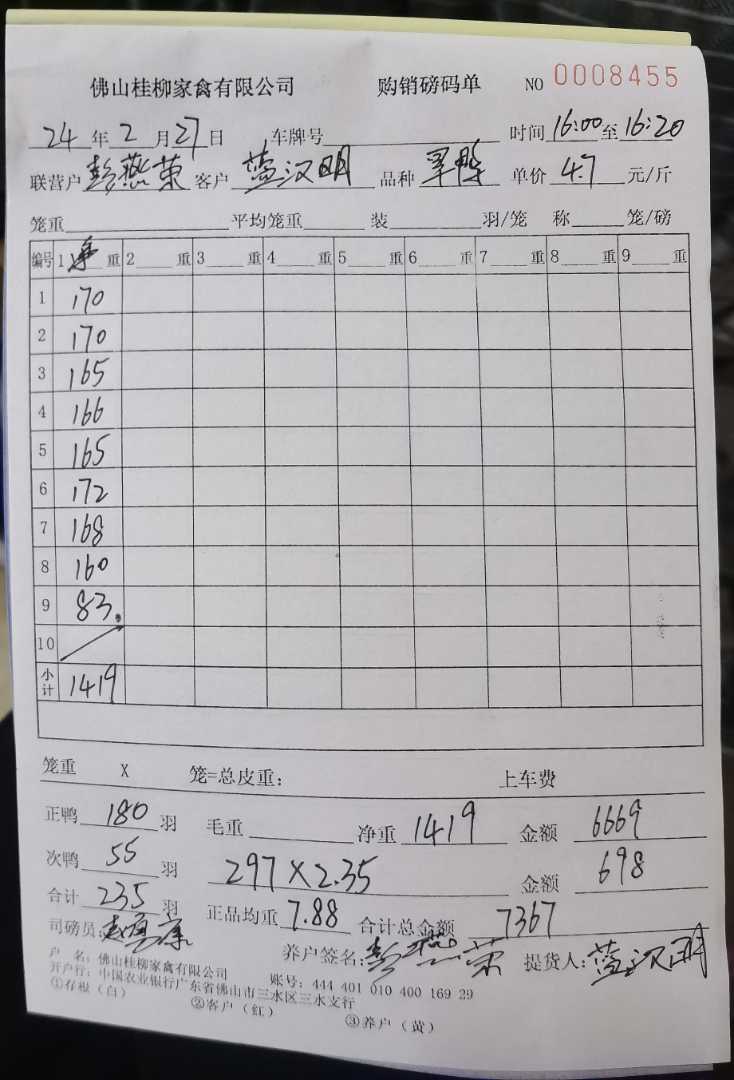 佛山桂柳家禽有限公司 购销磅码单 NO 0008455
24 年 2 月 27 日 车牌号 时间 16:00 至 16:20
联营户 彭燕荣 客户 蓝汉明 品种 单价 4.7 元/斤
笼重 平均笼重 装 羽/笼 称 笼/磅
编号 1 净 重 2 重 3 重 4 重 5 重 6 重 7 重 8 重 9 重
1 170
2 170
3 165
4 166
5 165
6 172
7 168
8 160
9 83.
10
小计 1419
笼重 X 笼=总皮重: 上车费
正鸭 180 羽 毛重 净重 1419 金额 6669
次鸭 55 羽 297×2.35 金额 698
合计 235 羽 正品均重 7.88 合计总金额 7367
司磅员: 养户签名: 彭燕荣 提货人: 蓝汉明
户 名: 佛山桂柳家禽有限公司 账号: 444 401 010 400 169 29
开户行: 中国农业银行广东省佛山市三水区三水支行
①存根(白) ②客户(红) ③养户(黄)